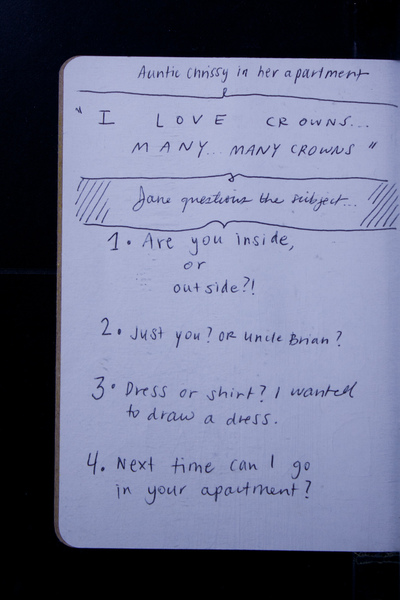 Auntie Chrissy in her apartment
"I LOVE CROWNS...
MANY... MANY CROWNS"
Jane questions the subject...
1. Are you inside,
or
outside?!
2. Just you? OR Uncle Brian?
3. Dress or shirt? I wanted
to draw a dress.
4. Next time can I go
in your apartment?